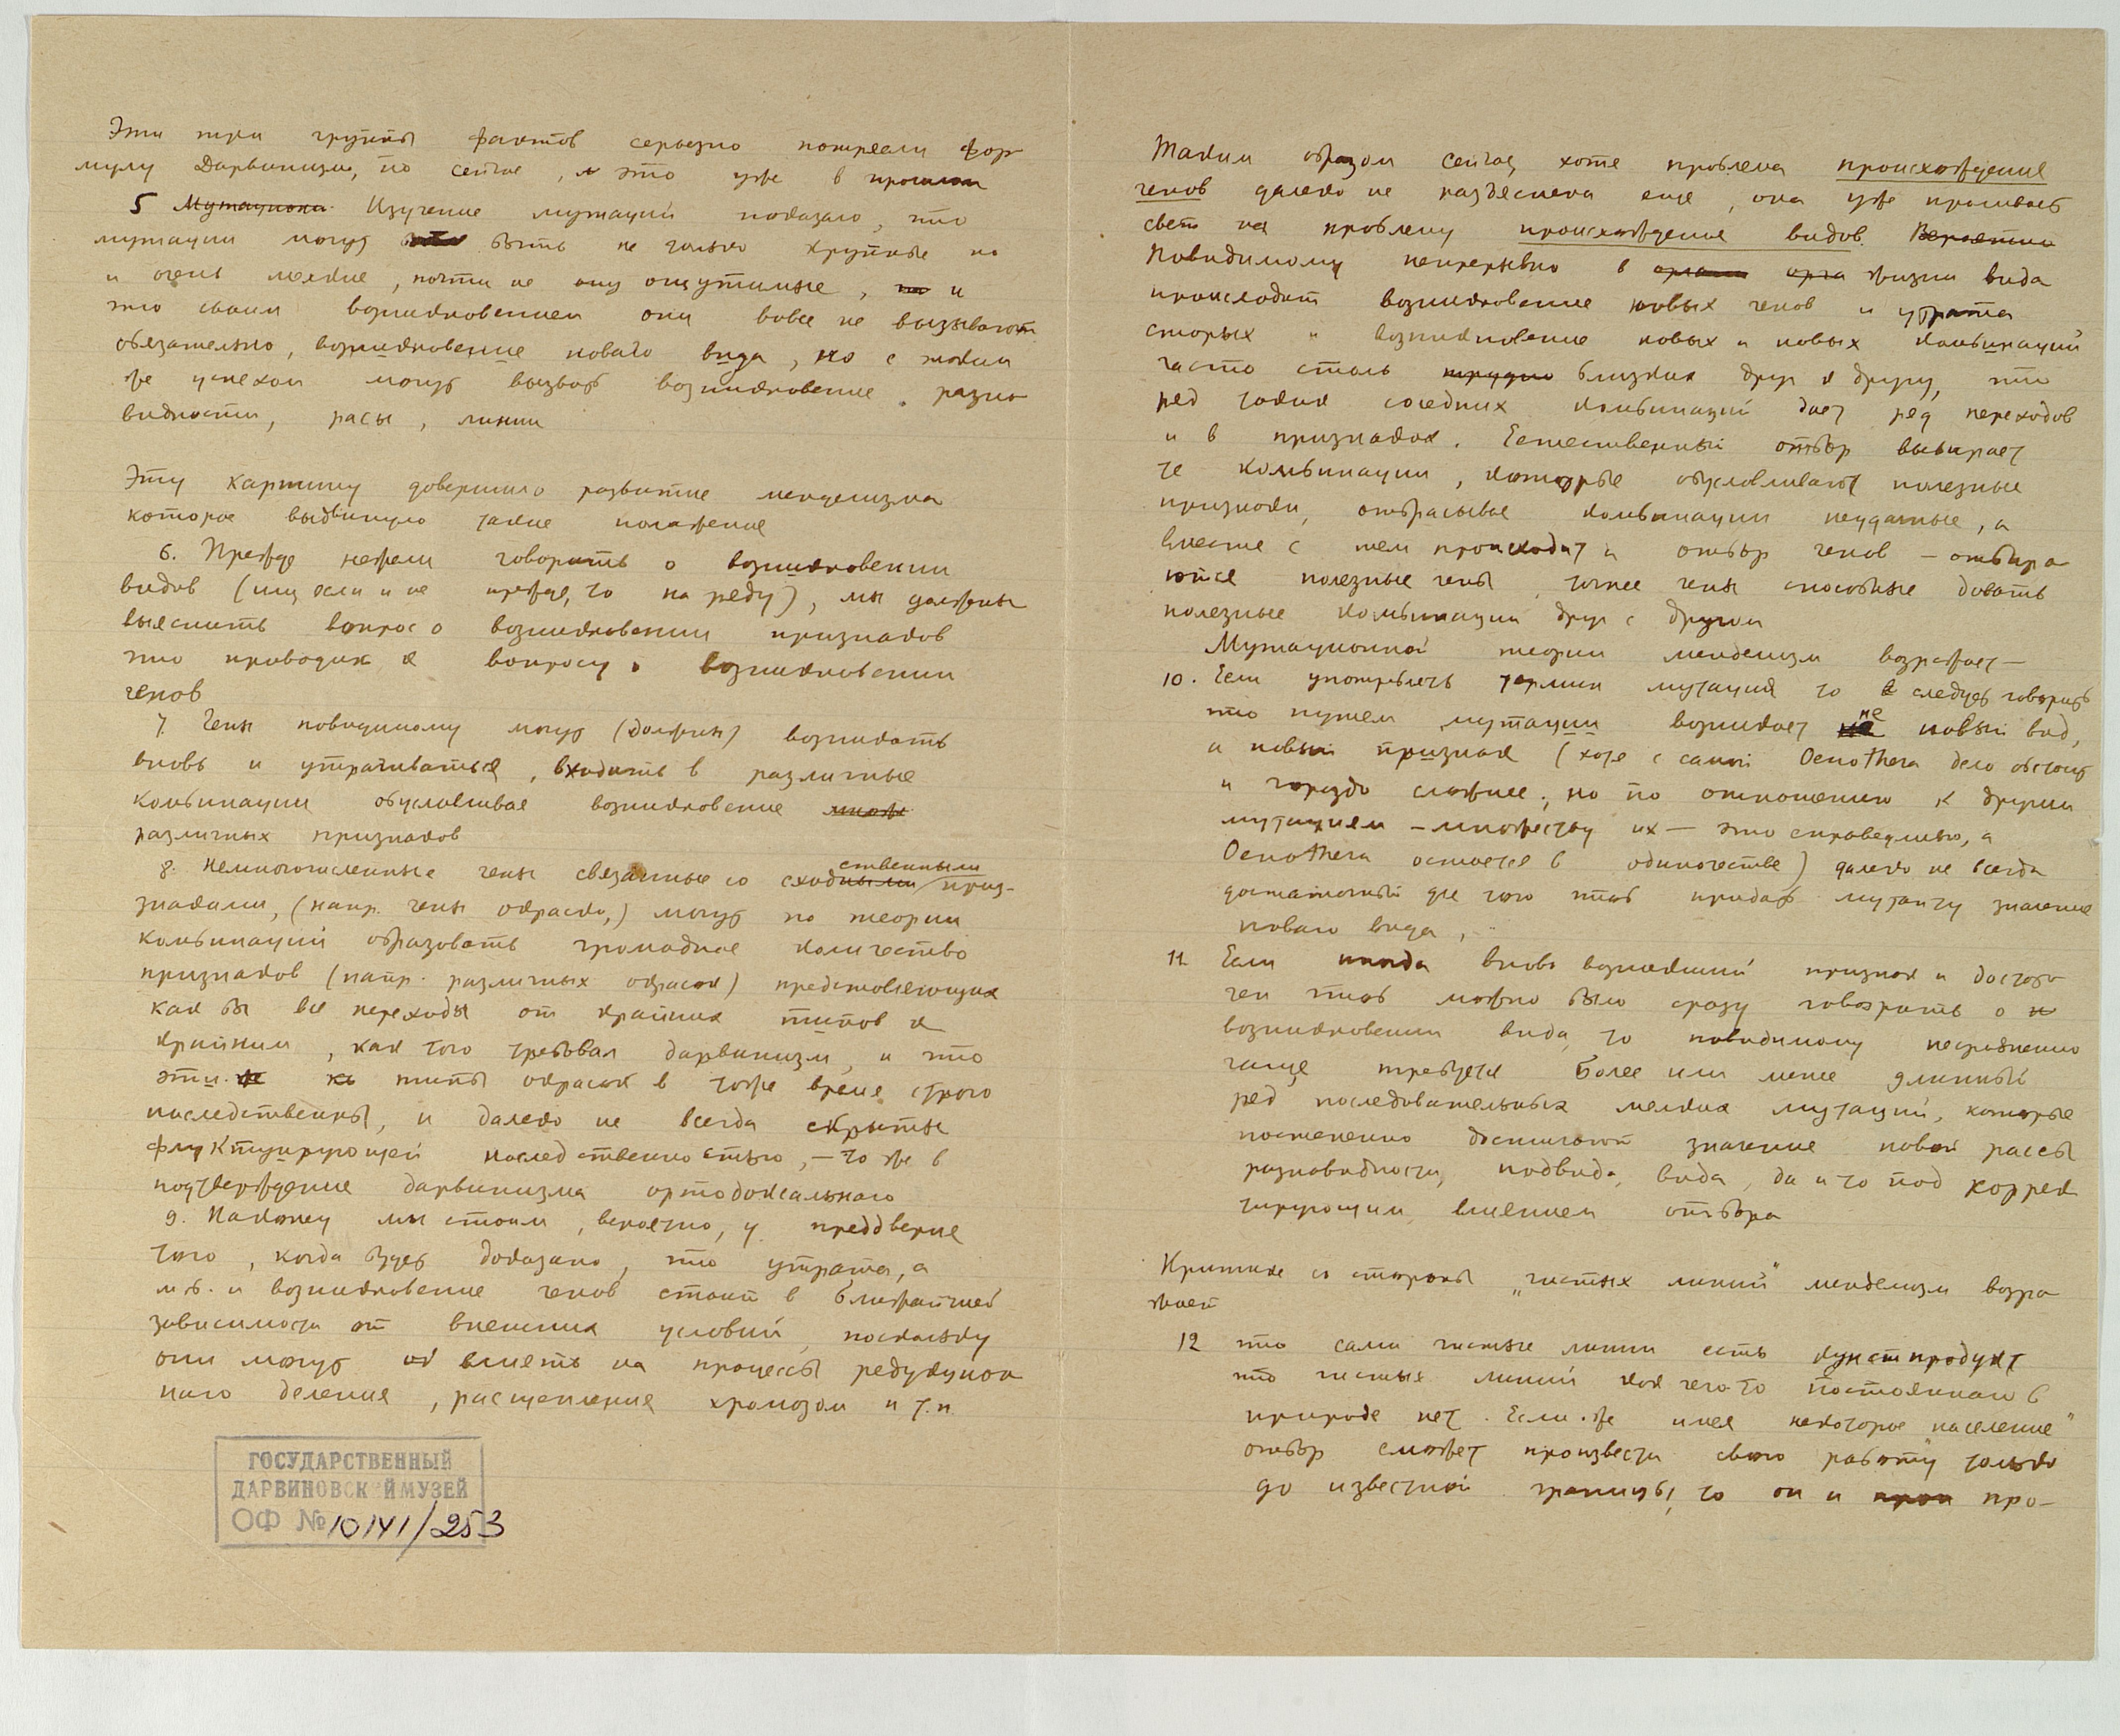 Эти три группы фактов серьезно потрясли фор
мулу Дарвинизма, но сейчас, и это уже в прошлом
5 Мутационн Изучение мутаций показало, что
мутации могут быть не только крупные но
и очень мелкие, почти не ощутимые, и
что своим возникновением они вовсе не вызывают
обязательно, возникновение новаго вида, но с таким
же успехом могут вызвать возникновение разно
видности, расы, линии
Эту картину довершило развитие менделизма
которое выдвинуло такие положения
6. Прежде нежели говорить о возникновении
видов (или если и не прежде, то на ряду), мы должны
выяснить вопрос о возникновении признаков
что приводит к вопросу о возникновении
генов
7. Гены повидимому могут (должны) возникать
вновь и утрачиваться, входить в различные
комбинации обусловливая возникновение
различных признаков
8. Немногочисленные гены связанные со сходственными приз-
знаками, (напр. гены окраски,) могут по теории
комбинаций образовать громадное количество
признаков (напр. различных окрасок) представляющих
как бы все переходы от крайних типов к
крайним, как того требовал дарвинизм, и что
эти типы окрасок в тоже время строго
наследственны, и далеко не всегда скрыты
флуктуирующей наследственностью, – то же в
подтверждение дарвинизма ортодоксальнаго
9. Наконец мы стоим, вероятно, у преддверия
того, когда будет доказано, что утрата, а
м.б. и возникновение генов стоит в ближайшей
зависимости от внешних условий, поскольку
они могут влиять на процессы редукцион
наго деления, расщепления хромозом и т.п.
ГОСУДАРСТВЕННЫЙ
ДАРВИНОВСКИЙ МУЗЕЙ
ОФ № 10141/253
Таким образом сейчас, хотя проблема происхождения
генов далеко не разъяснена еще, она уже проливает
свет на проблему происхождения видов. Вероятно
Повидимому непрерывно в жизни вида
происходит возникновение новых генов и утрата
старых и возникновение новых и новых комбинаций
часто столь трудно близких друг к другу, что
ряд таких соседних комбинаций дает ряд переходов
и в признаках. Естественный отбор выбирает
те комбинации, которые обусловливают полезные
признаки, отбрасывая комбинации неудачные, а
вместе с тем происходит и отбор генов – отбира
ются полезные гены, точнее гены способные давать
полезные комбинации друг с другом
Мутационной теории менделизм возражает –
10. Если употреблять термин мутация то следует говорить
что путем мутации возникает не новый вид,
а новый признак (хотя с самой Oenothera дело обстоит
и гораздо сложнее; но по отношению к другим
мутациям – множеству их – это справедливо, а
Oenothera остается в одиночестве) далеко не всегда
достаточный для того чтоб придать мутанту значение
новаго вида,
11. Если иногда вновь возникший признак и достато
чен чтоб можно было сразу говорить о
возникновении вида, то повидимому несравненно
чаще требуется более или менее длинный
ряд последовательных мелких мутаций, которые
постепенно достигают значение новой рассы
разновидности, подвида, вида, да и то под коррек
тирующим влиянием отбора
Критике со стороны „чистых линий" менделизм возра
жает
12 что сами чистые линии есть кунстпродукт
что чистых линий как чего-то постояннаго в
природе нет. Если же имея некоторое население"
отбор сможет произвести свою работу только
до известной границы, то он и про-